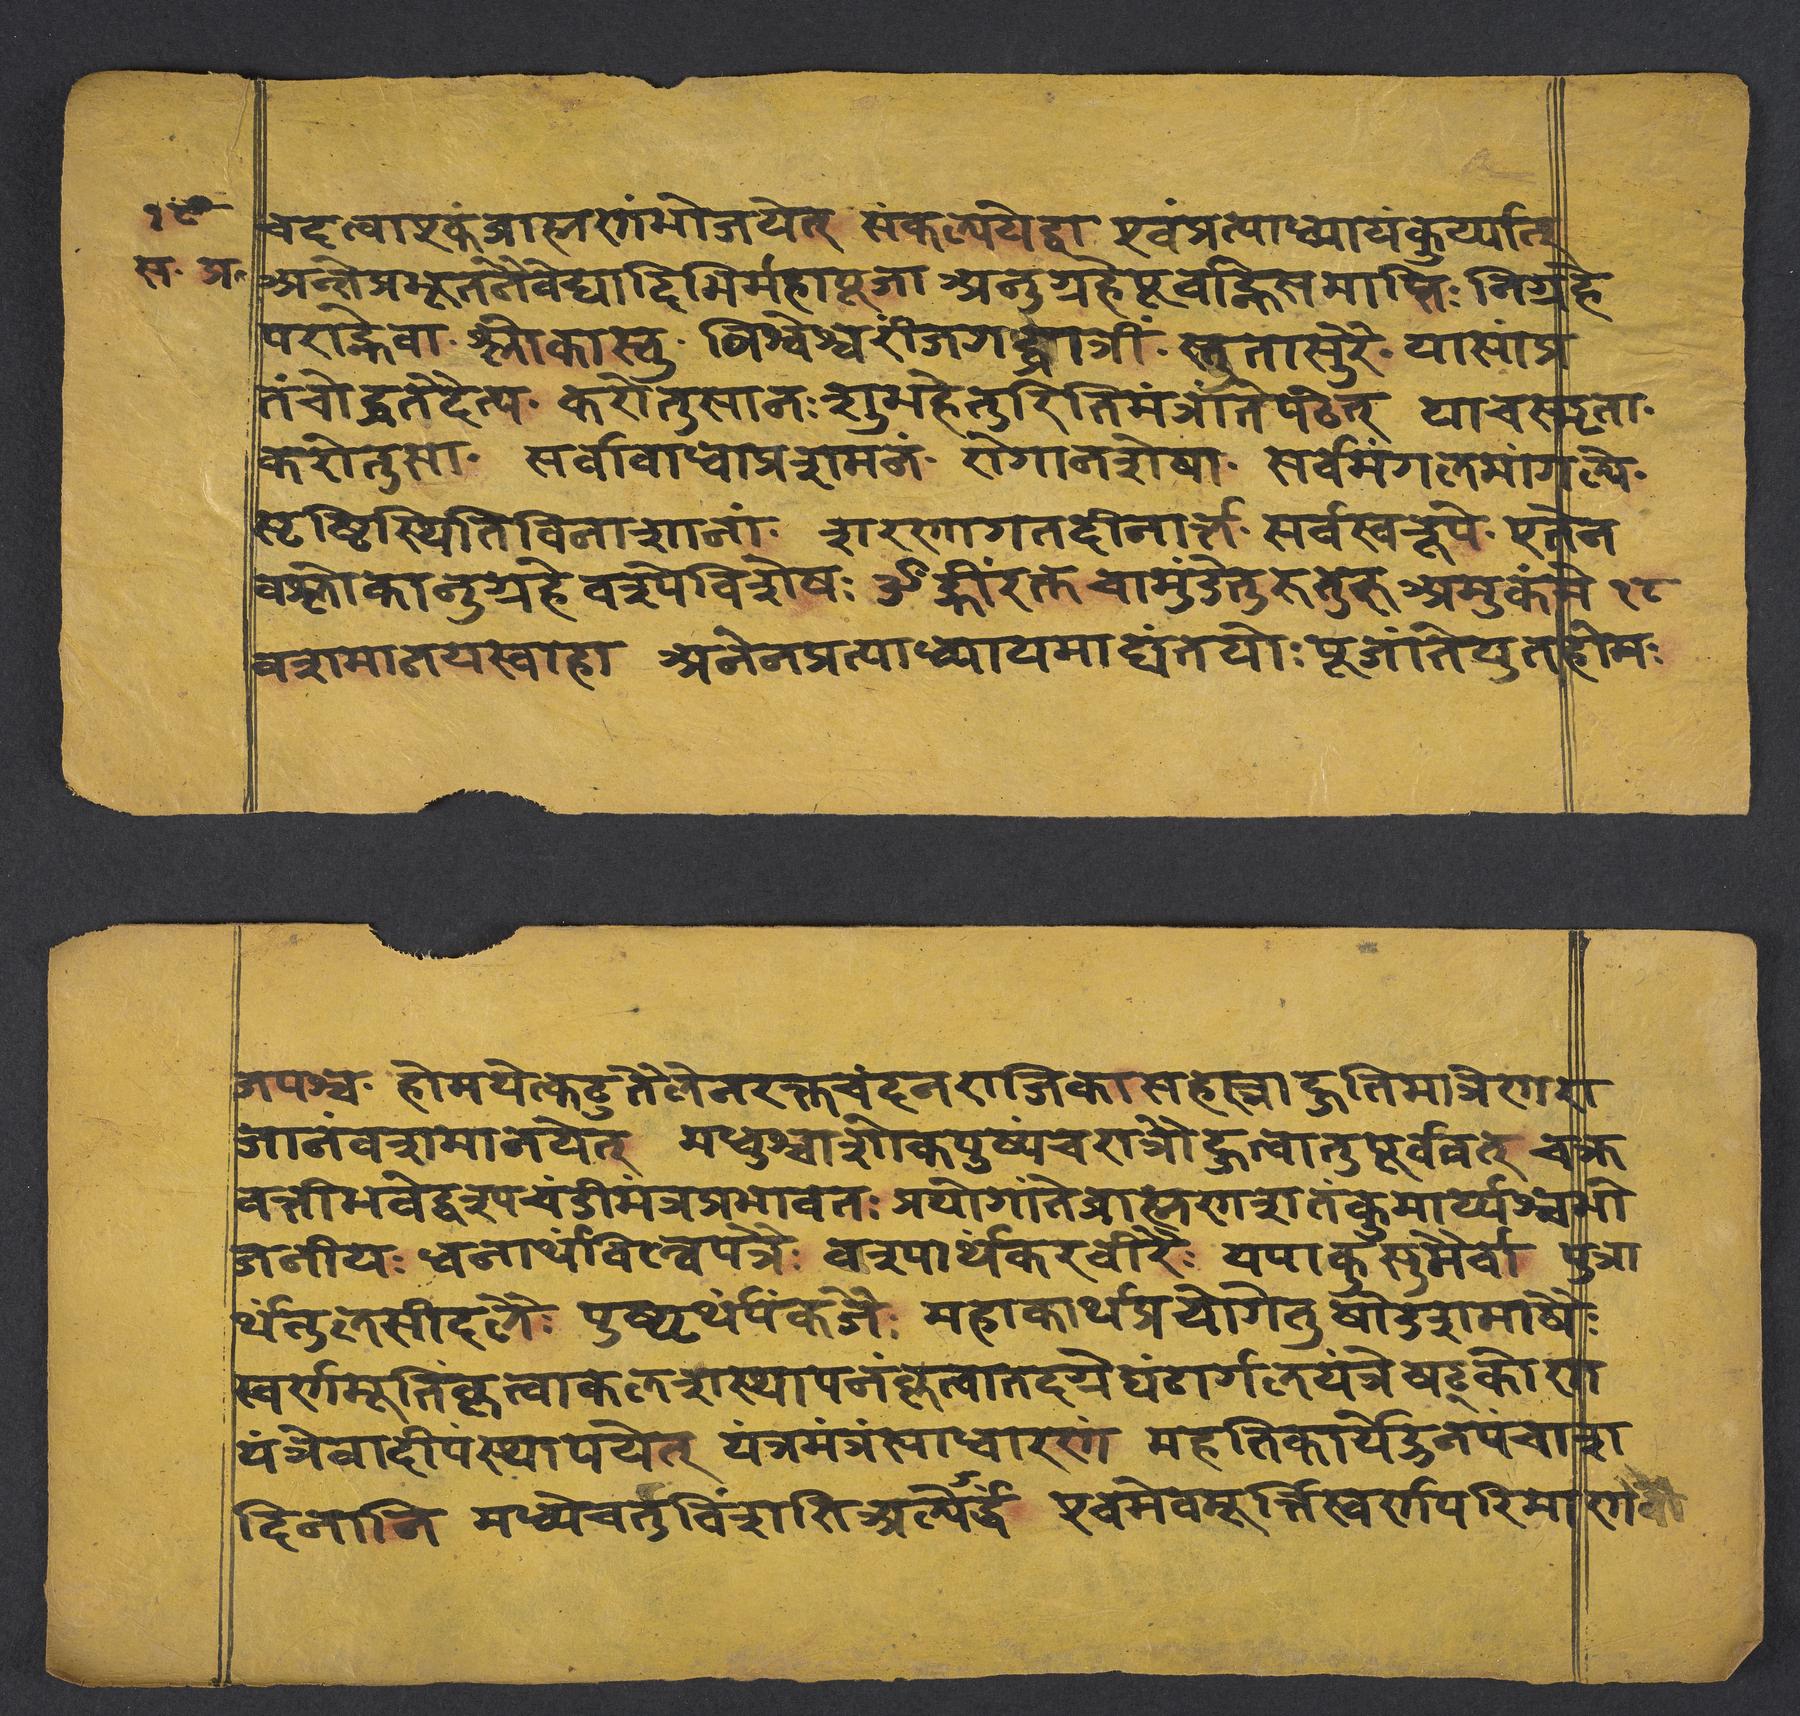 १८
स॰ प्र॰
चदत्वाएकंब्राह्मणंभोजयेत् संकल्पयेद्वा एवंप्रत्याध्यायंकुर्य्यात्
अन्तेप्रभूतनैवेद्यादिभिर्महापूजा अनुग्रहेपूर्वाह्णेसमाप्तिः निग्रहे
पराह्णेवा श्लोकास्तु॰ विश्वेश्वरींजगद्धात्रीं॰ स्तुतासुरै॰ यासांप्र
तंचोद्धतदैत्य॰ करोतुसानः शुभहेतुरितिमंत्रांतेपठेत् याचस्मृता॰
करोतुसा॰ सर्वाबाधाप्रशमनं॰ रोगानशेषा॰ सर्वमंगलमांगल्ये॰
सृष्टिस्थितिविनाशानां॰ शरणागतदीनार्त्त॰ सर्वस्वरूपे॰ एतेन
वश्लोकानुग्रहे वश्येविशेषः ॐ ह्रींरक्तचामुंडेतुरुतुरु अमुकंमे १८
वशमानयस्वाहा अनेनप्रत्याध्यायमाद्यंतयोः पूजांतेयुतहोमः
जपश्च॰ होमयेत्कटुतैलेनरक्तचंदनराजिकासहस्राहुतिमात्रेणरा
जानंवशमानयेत् मधुश्चाशोकपुष्पंचरात्रौहुत्वातुपूर्ववत् चक्र
वर्त्तीभवेद्वश्यचंडीमंत्रप्रभावतः प्रयोगांतेब्राह्मणशतंकुमार्य्यश्चभो
जनीयः धनार्थंविल्वपत्रैः वश्यार्थंकरवीरैः जपाकुसुमैर्वा पुत्रा
र्थंतुलसीदलैः पुष्ट्यर्थंपंकजैः महाकार्यप्रयोगेतु षोडशमाषैः
स्वर्णमूर्तिंकृत्वाकलशस्थापनंकृत्वातदग्रेघंटार्गलयंत्रेषट्कोण
यंत्रेवादीपंस्थापयेत् यंत्रमंत्रंसाधारणं महतिकार्येऊनपंचाश
दिनानि मध्येचतुर्विंशति अल्पेर्द्धं एवमेवमूर्त्तिस्वर्णपरिमाणं